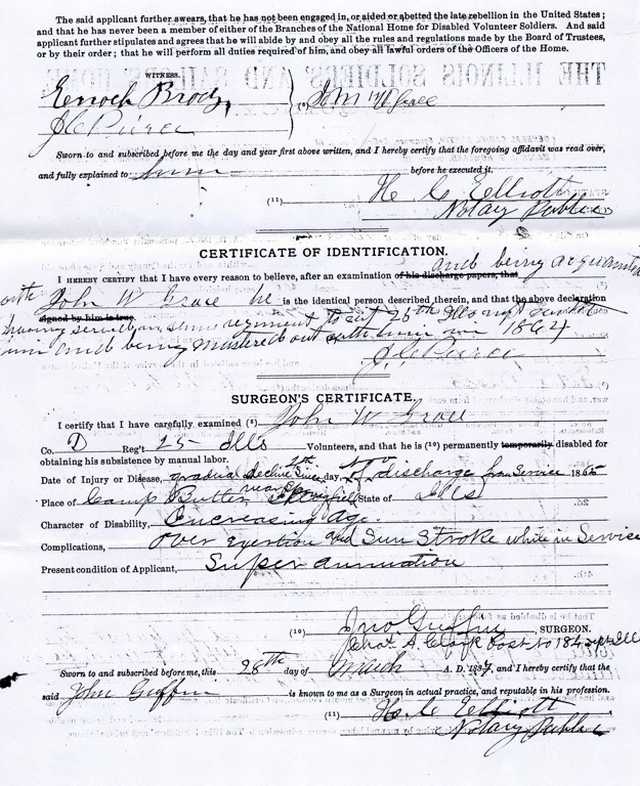 The said applicant further swears, that he has not been engaged in, or aided or abetted the late rebellion in the United States;
and that he has never been a member of either of the Branches of the National Home for Disabled Volunteer Soldiers. And said
applicant further stipulates and agrees that he will abide by and obey all the rules and regulations made by the Board of Trustees,
or by their order; that he will perform all duties required of him, and obey all lawful orders of the Officers of the Home.
WITNESS.
Enoch
J C Pierce
Sworn to and subscribed before me the day and year first above written, and I hereby certify that the foregoing affidavit was read over,
and fully explained to him before he executed it.
(11) H C Elliott
Notary Public
CERTIFICATE OF IDENTIFICATION.
and being acquainted
I HEREBY CERTIFY that I have every reason to believe, after an examination of his discharge papers, that
with John W Grace he is the identical person described therein, and that the above declaration
signed by him is true.
having served in same regiment to wit 25th Ills
him and being mustered out with him in 1864
J C Pierce
SURGEON'S CERTIFICATE.
I certify that I have carefully examined (2) John W Grace
Co. D Reg't 25 Ills Volunteers, and that he is (10) permanently temporarily disabled for
obtaining his subsistence by manual labor.
Date of Injury or Disease, gradual decline since day discharge from Service 1865
Place of Camp Butler near Springfield State of Ills
Character of Disability, Encreasing age.
Complications, Over exertion and Sun Stroke while in Service
Present condition of Applicant, Superannuation
(10) Jno Griffin SURGEON.
Post No 184
Sworn to and subscribed before me, this 28th day of March A. D. 1887, and I hereby certify that the
said John Griffin is known to me as a Surgeon in actual practice, and reputable in his profession.
(11) H C Elliott
Notary Public